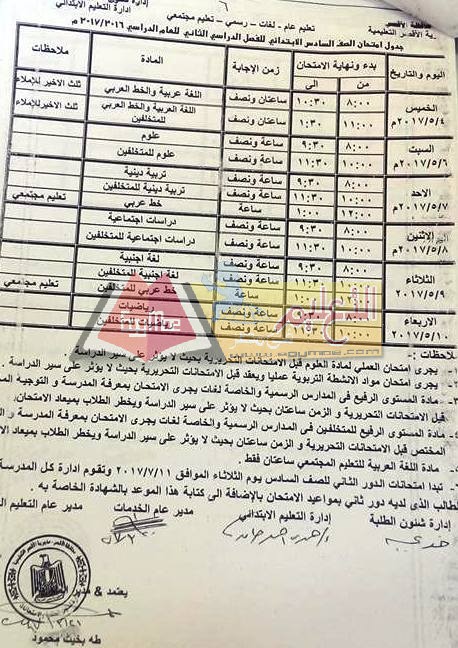 محافظة الأقصر
إدارة التعليم الابتدائي
تعليم عام - لغات - رسمي - تعليم مجتمعي
جدول امتحان الصف السادس الابتدائي للفصل الدراسي الثاني للعام الدراسي ٢٠١٧/٢٠١٦ م
اليوم والتاريخ بدء ونهاية الامتحان زمن الإجابة المادة ملاحظات
من الى
الخميس ٢٠١٧/٥/٤م
٨:٠٠ ١٠:٣٠ ساعتان ونصف اللغة عربية والخط العربي ثلث الاخير للإملاء
١١:٠٠ ١:٣٠ ساعتان ونصف اللغة العربية والخط العربي للمتخلفين ثلث الاخير للإملاء
السبت ٢٠١٧/٥/٦م
٨:٠٠ ٩:٣٠ ساعة ونصف علوم
١٠:٠٠ ١١:٣٠ ساعة ونصف علوم للمتخلفين
الاحد ٢٠١٧/٥/٧م
٨:٠٠ ٩:٣٠ ساعة ونصف تربية دينية
١٠:٠٠ ١١:٣٠ ساعة ونصف تربية دينية للمتخلفين
١٢:٠٠ ١:٠٠ ساعة خط عربي تعليم مجتمعي
الاثنين ٢٠١٧/٥/٨م
٨:٠٠ ٩:٣٠ ساعة ونصف دراسات اجتماعية
١٠:٠٠ ١١:٣٠ ساعة ونصف دراسات اجتماعية للمتخلفين
الثلاثاء ٢٠١٧/٥/٩م
٨:٠٠ ٩:٣٠ ساعة ونصف لغة اجنبية
١٠:٠٠ ١١:٣٠ ساعة ونصف لغة أجنبية للمتخلفين
١:٠٠ ساعة خط عربي للمتخلفين تعليم مجتمعي
الاربعاء ٢٠١٧/٥/١٠م
٨:٠٠ ساعة ونصف رياضيات
١٠:٠٠ ونصف رياضيات للمتخلفين
ملاحظات :-
يجرى امتحان العملي لمادة العلوم قبل الامتحانات التحريرية بحيث لا يؤثر على سير الدراسة .
يجرى امتحان مواد الانشطة التربوية عمليا ويعقد قبل الامتحانات التحريرية بحيث لا يؤثر على سير الدراسة .
٣- مادة المستوى الرفيع في المدارس الرسمية والخاصة لغات يجرى الامتحان بمعرفة المدرسة و التوجيه
قبل الامتحانات التحريرية و الزمن ساعتان بحيث لا يؤثر على سير الدراسة ويخطر الطلاب بميعاد الامتحان.
٤- مادة المستوى الرفيع للمتخلفين في المدارس الرسمية والخاصة لغات يجرى الامتحان بمعرفة المدرسة و
المختص قبل الامتحانات التحريرية و الزمن ساعتان بحيث لا يؤثر على سير الدراسة ويخطر الطلاب بميعاد
مادة اللغة العربية للتعليم المجتمعي ساعتان فقط .
تبدا امتحانات الدور الثاني للصف السادس يوم الثلاثاء الموافق ٢٠١٧/٧/١١ وتقوم ادارة كل المدرسة
الطالب الذى لديه دور ثاني بمواعيد الامتحان بالإضافة الى كتابة هذا الموعد بالشهادة الخاصة به .
إدارة شئون الطلبة إدارة التعليم الابتدائي مدير عام الخدمات مدير عام التعليم
يعتمد
طه بخيت محمود